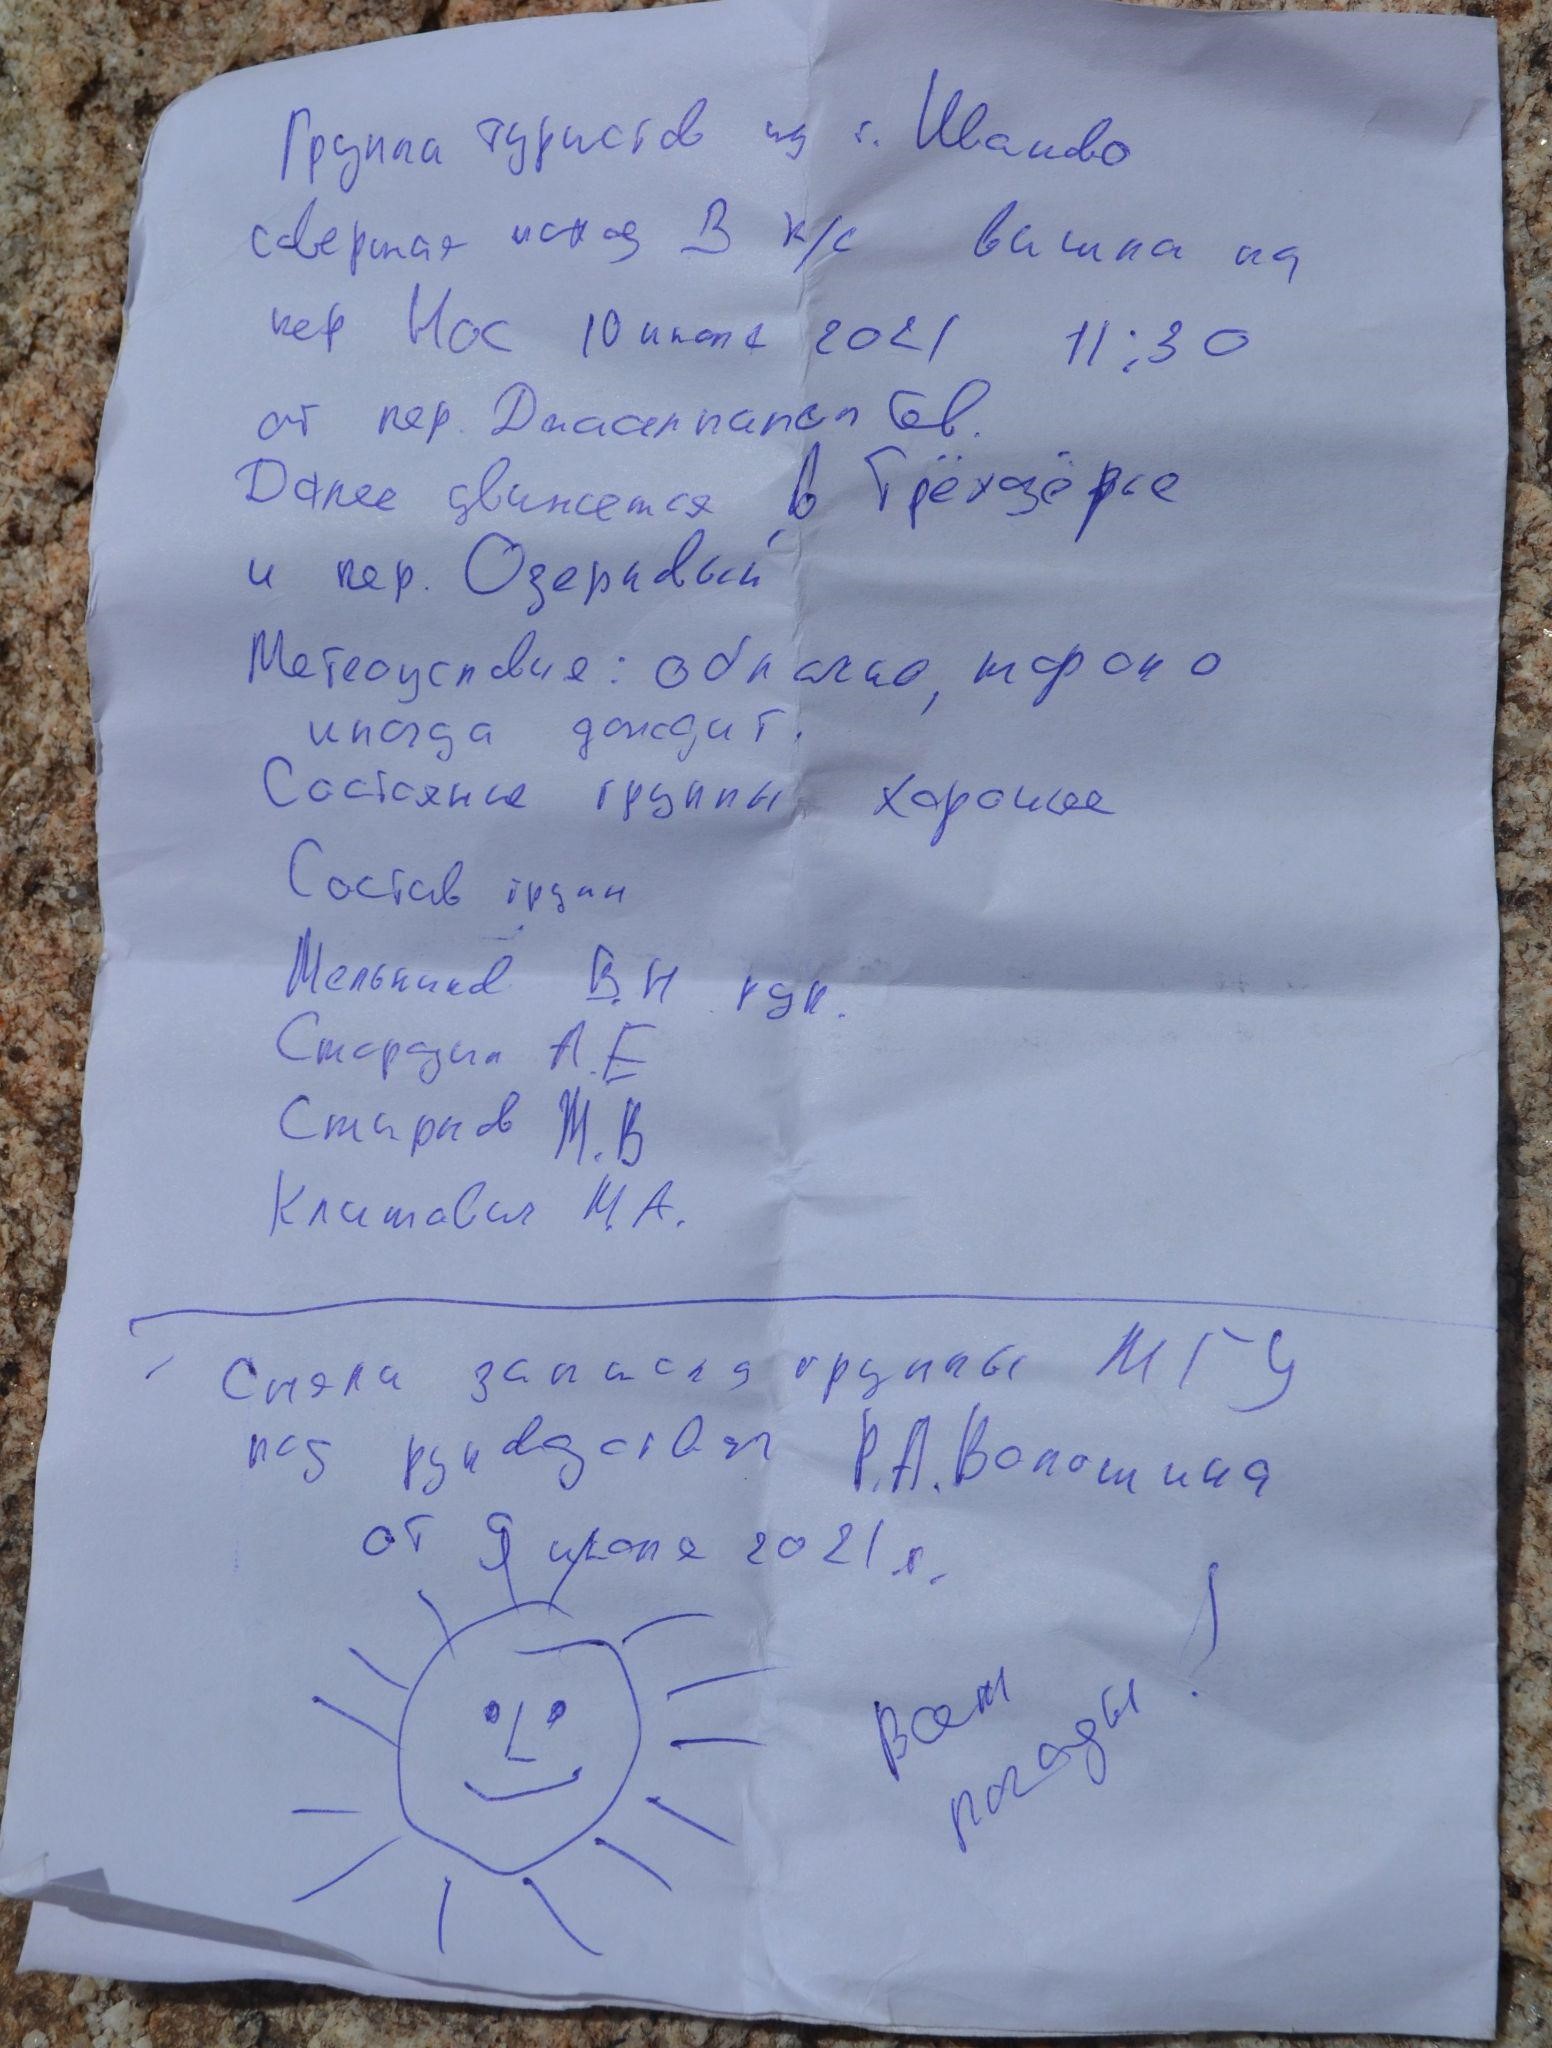 Группа туристов из г. Иваново
совершая поход В к/с вышла на
пер Нос 10 июля 2021 11:30
от пер.
Далее движемся в Трёхозёрье
и пер. Озерновый
Метеоусловия: облачно, жарко
иногда дождит.
Состояние группы хорошее
Состав групп
Мельников В.Н рук.
А.Е
Старков М.В
М.А.
Сняли записку группы МГУ
под руководством Р.А. Волошина
от 9 июля 2021 г.
Вам
погоды!